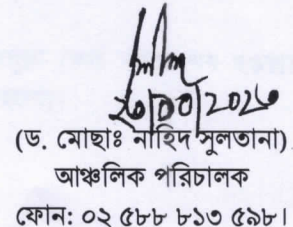 ২৩|০০|২০২৩
(ড. মোছাঃ নাহিদ সুলতানা)
আঞ্চলিক পরিচালক
ফোন: ০২ ৫৮৮ ৮১৩ ৫৯৮।